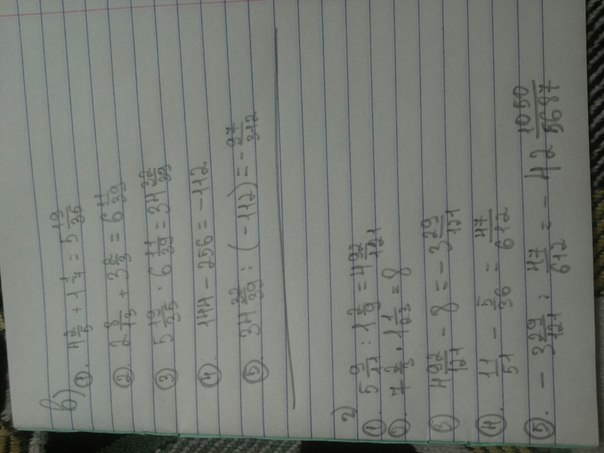 в)
①. 4 2/5 + 1 1/7 = 5 19/35
②. 2 8/13 + 3 2/3 = 6 11/39
③ 5 19/35 · 6 11/39 = 34 32/39
④. 144 - 256 = -112
⑤. 34 32/39 : (-112) = - 97/312
г)
①. 5 9/11 : 1 2/9 = 4 92/121
②. 7 2/3 · 1 1/23 = 8
③ 4 92/121 - 8 = -3 29/121
④. 11/51 - 5/36 = 47/612
⑤. -3 29/121 : 47/612 = -42 1050/5687